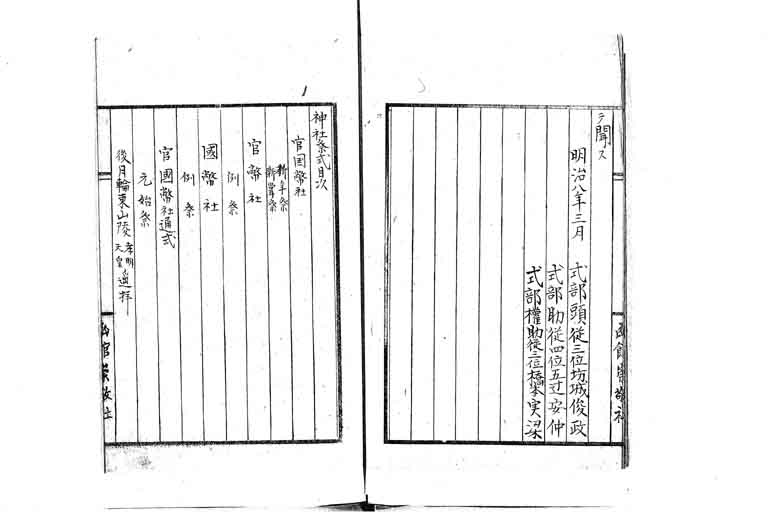 テ聞ス
明治八年三月
式部頭從三位坊城俊政
式部助從四位五辻安仲
式部權助從三位橋本実梁
神社祭式目次
官国幣社
祈年祭
新嘗祭
官幣社
例祭
國幣社
例祭
官國幣社通式
元始祭
後月輪東山陵孝明天皇遥拝
函館崇敬社